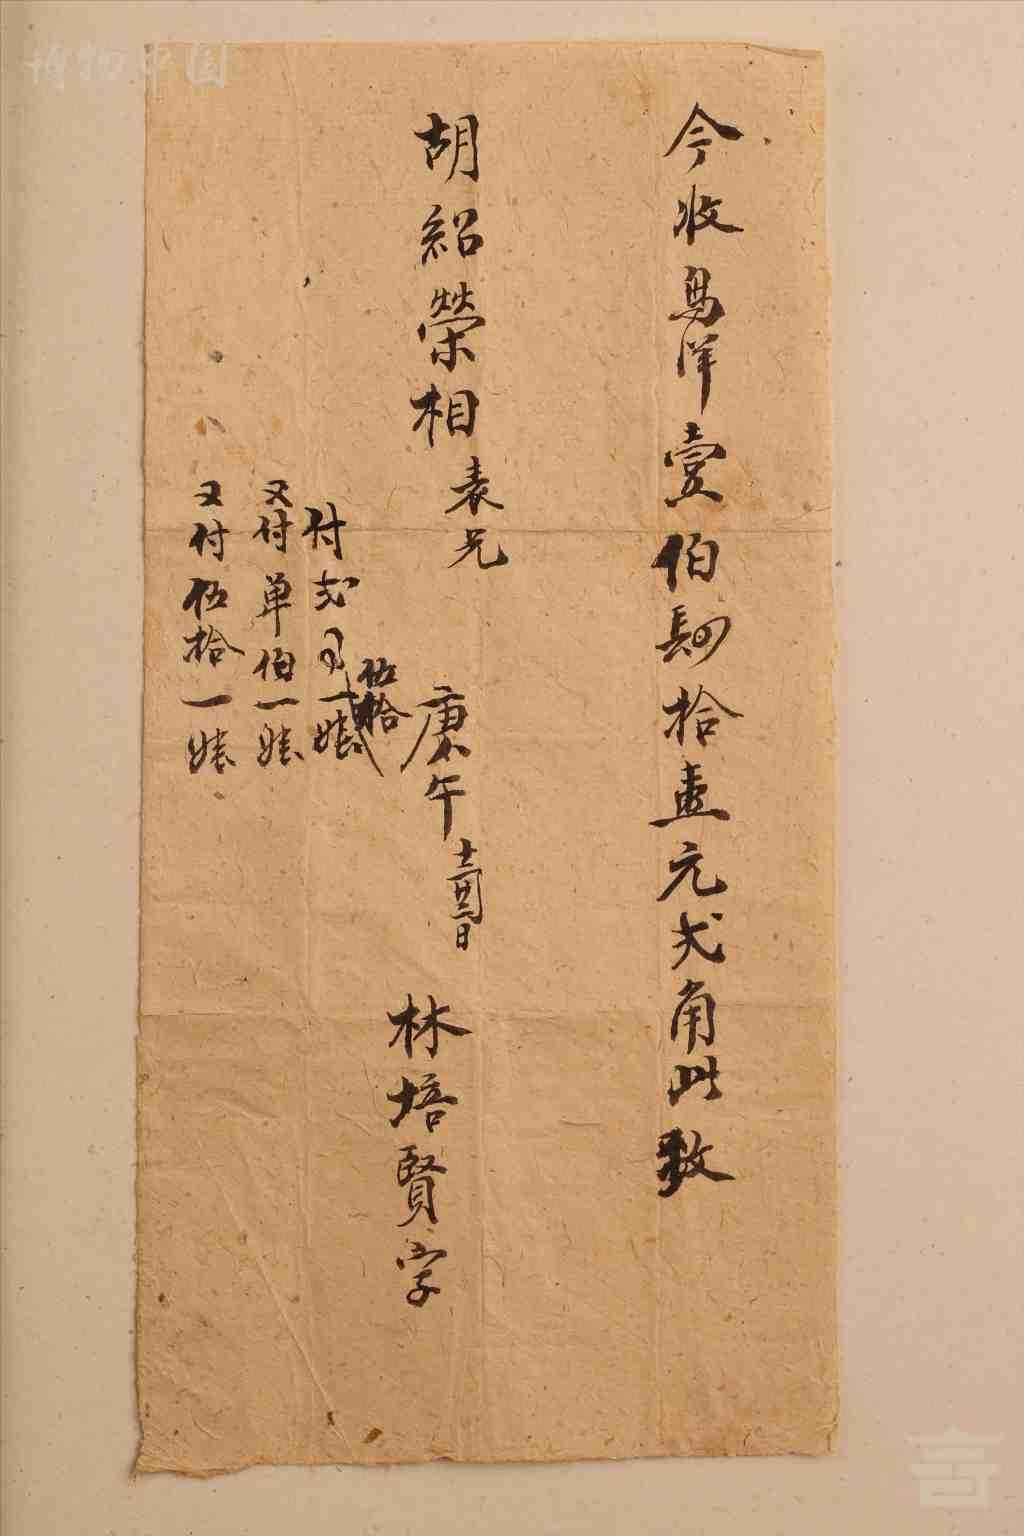 今收烏洋壹伯肆拾壹元弍角此數
胡紹榮相表兄
庚午十二月廿二日 林培賢字
伍拾
付弍百一婊
又付单伯一婊
又付伍拾一婊
博物中国